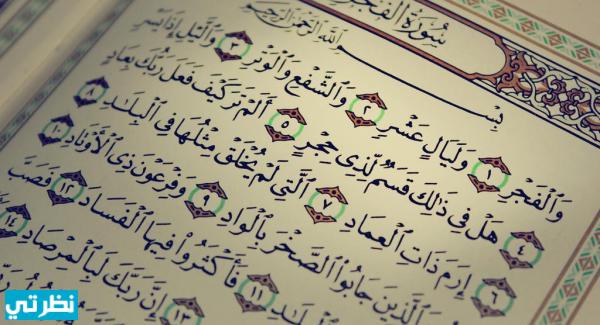 سُورَةُ الْفَجْرِ
بِسْمِ اللَّهِ الرَّحْمَٰنِ الرَّحِيمِ
وَٱلْفَجْرِ ١ وَلَيَالٍ عَشْرٍ ٢ وَٱلشَّفْعِ وَٱلْوَتْرِ ٣ وَٱلَّيْلِ إِذَا يَسْرِ
٤ هَلْ فِى ذَٰلِكَ قَسَمٌ لِّذِى حِجْرٍ ٥ أَلَمْ تَرَ كَيْفَ فَعَلَ رَبُّكَ بِعَادٍ
٦ إِرَمَ ذَاتِ ٱلْعِمَادِ ٧ ٱلَّتِى لَمْ يُخْلَقْ مِثْلُهَا فِى ٱلْبِلَٰدِ ٨
ٱلَّذِينَ جَابُوا۟ ٱلصَّخْرَ بِٱلْوَادِ ٩ وَفِرْعَوْنَ ذِى ٱلْأَوْتَادِ ١٠
ٱلْبِلَٰدِ ١١ فَأَكْثَرُوا۟ فِيهَا ٱلْفَسَادَ ١٢ فَصَبَّ
١٣ إِنَّ رَبَّكَ لَبِٱلْمِرْصَادِ ١٤
نظرتي